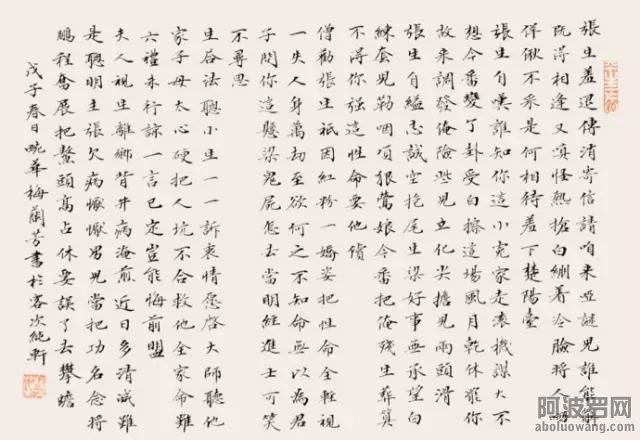 張生羞退傳消寄信請咱来啞謎兒誰能解
既得相逢又嗔怪熱搶白綳着冷臉將人
佯偢不采是何相待羞下楚陽臺
張生自嘆誰知你這小冤家走滚機謀大不
想今番變了卦受白撩這場風月乾休罷你
故来調發俺險些兒立化尖擔兒兩頭滑
張生自縊志誠空抱尾生梁好事無承望白
練套兒勒咽項狠鶯娘今番把俺殘生葬算
不得你强這性命要他償
僧勸張生祇因紅粉一嬌姿把性命全輕視
一失人身萬劫至欲何之不知命無以為君
子問你這懸梁鬼屍怎去當明經進士可笑
不尋思
生咨法聰小生一一訴衷情愿啓大師聽他
家子母太心硬把人坑不合救他全家命雖
六禮未行諒一言已定豈能悔前盟
夫人視生離鄉背井病淹煎近日多清減雖
是聰明主張欠病懨懨男兒當把功名念將
鵬程奮展把鰲頭高占休要誤了去攀蟾
戊子春日畹華梅蘭芳書於客次純軒
阿波罗网
aboluowang.com